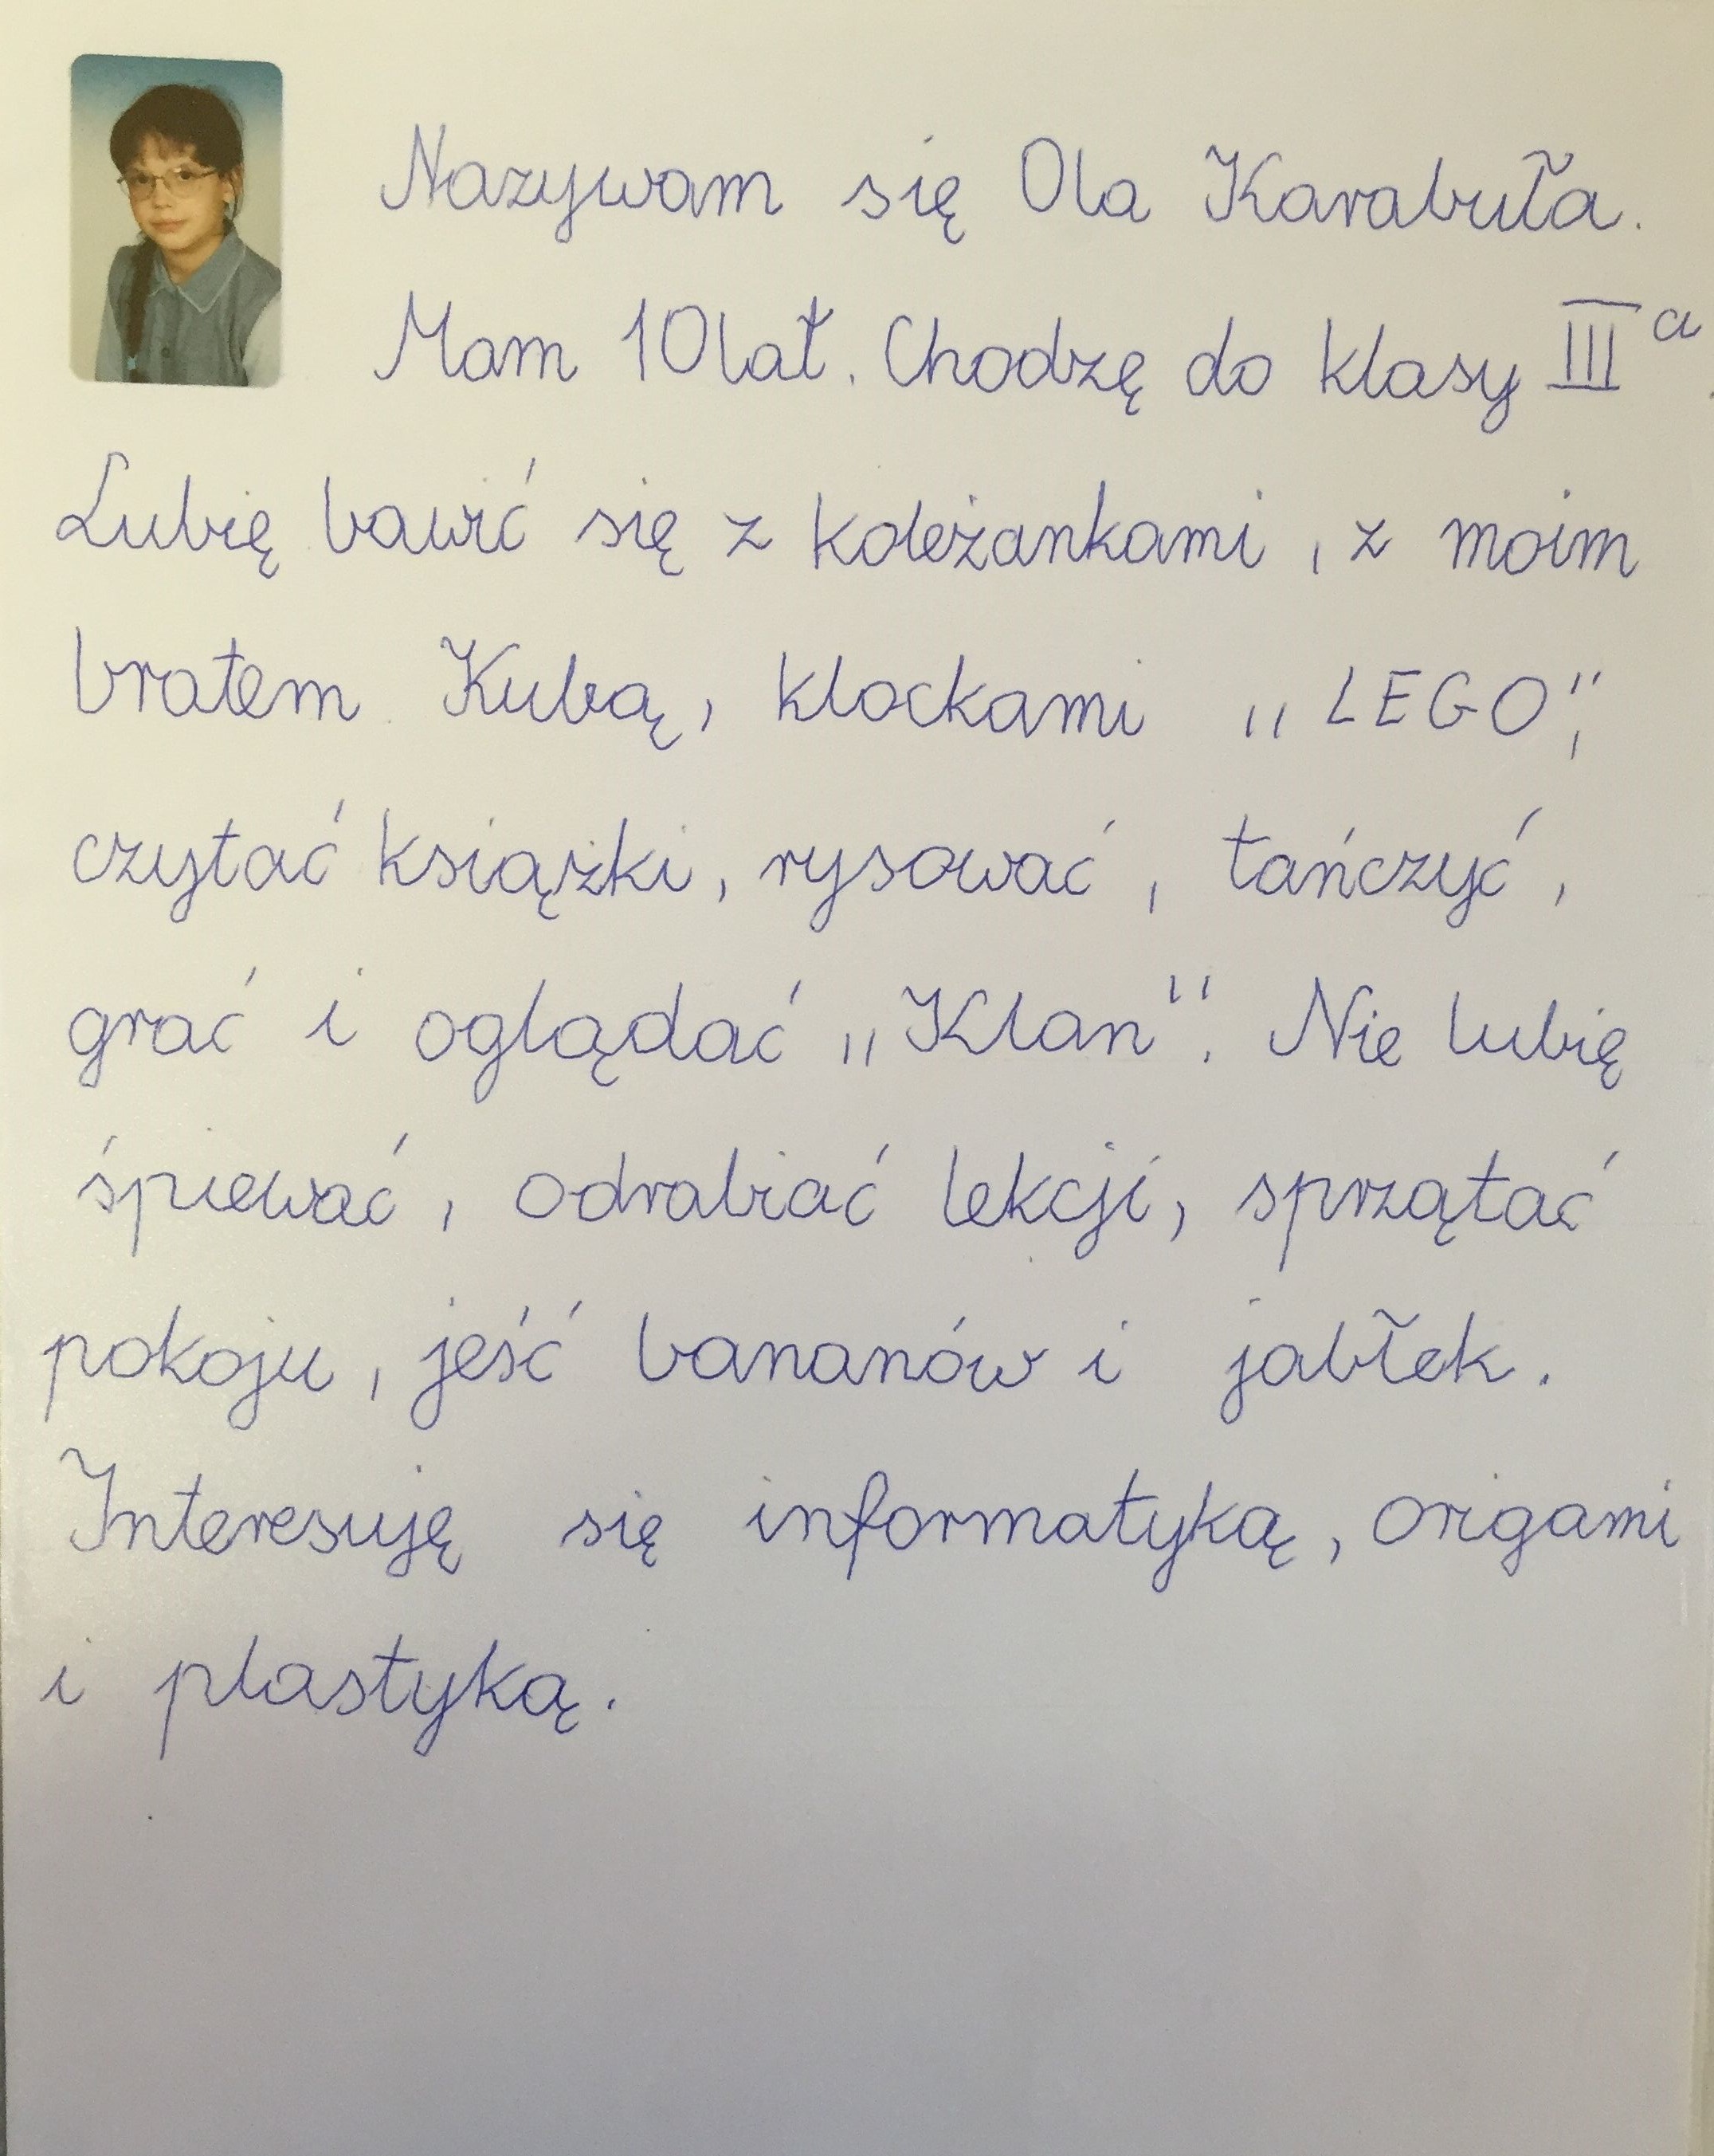 Nazywam się Ola Karabuła.
Mam 10 lat. Chodzę do klasy III a.
Lubię bawić się z koleżankami, z moim
bratem Kubą, klockami „LEGO”,
czytać książki, rysować, tańczyć,
grać i oglądać „Klan”. Nie lubię
śpiewać, odrabiać lekcji, sprzątać
pokoju, jeść bananów i jabłek.
Interesuję się informatyką, origami
i plastyką.